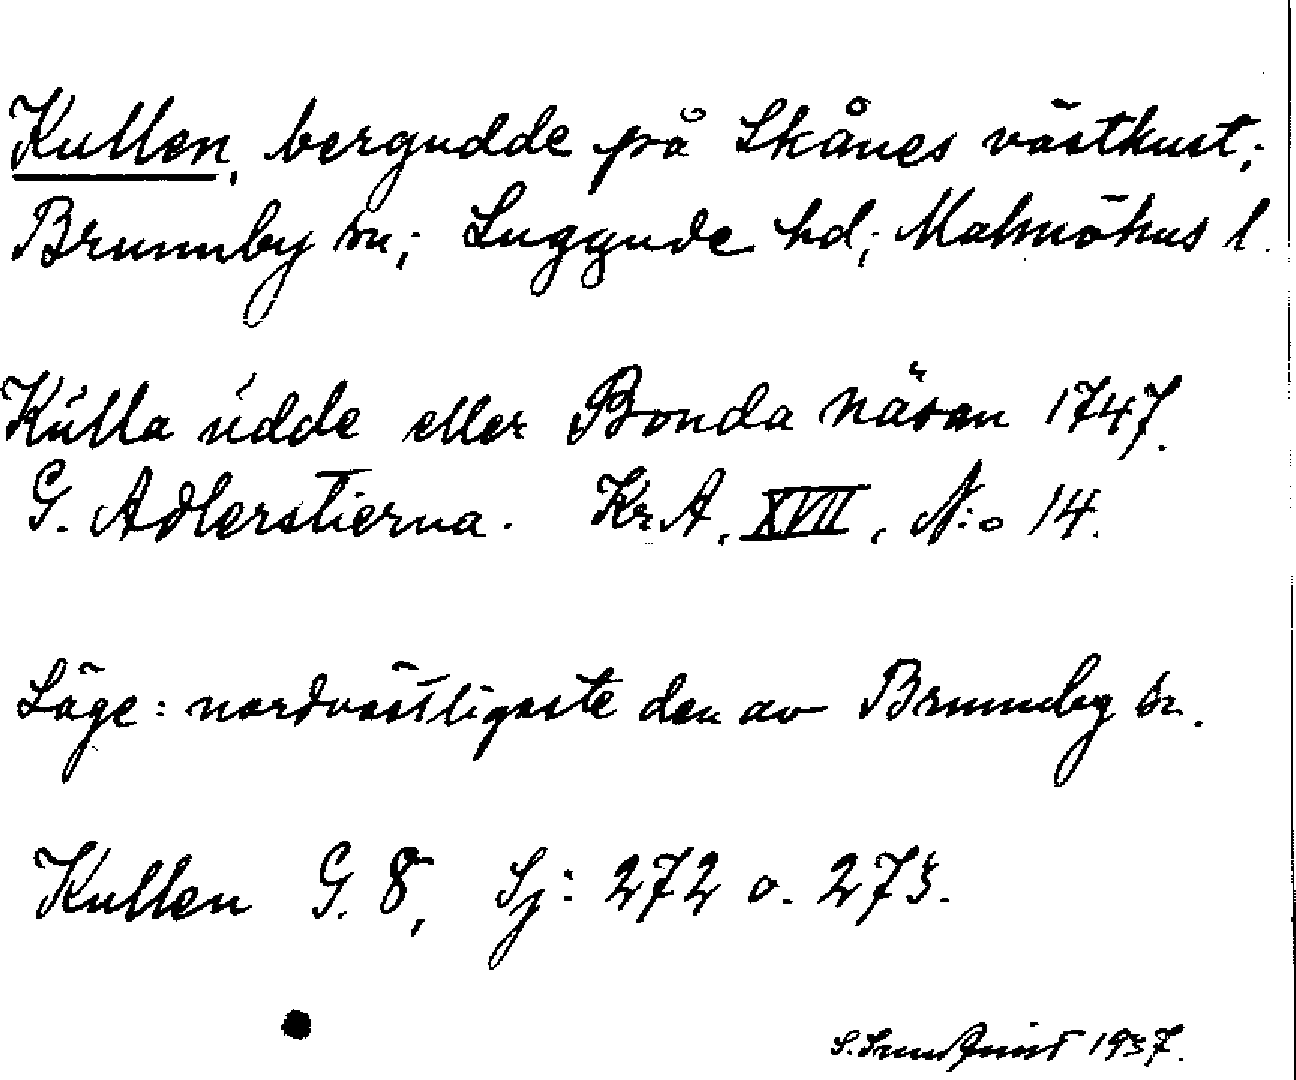 Kullen, bergudde på Skånes västkust;
Brunnby sn; Luggude hd; Malmöhus l.
Kulla udde eller Bonda näsan 1747.
G. Adlerstierna. Kr. A. XVII, N:o 14.
Läge: nordvästligaste den av Brunnby sn.
Kullen G. 8, Sj: 272 o. 273.
1937.